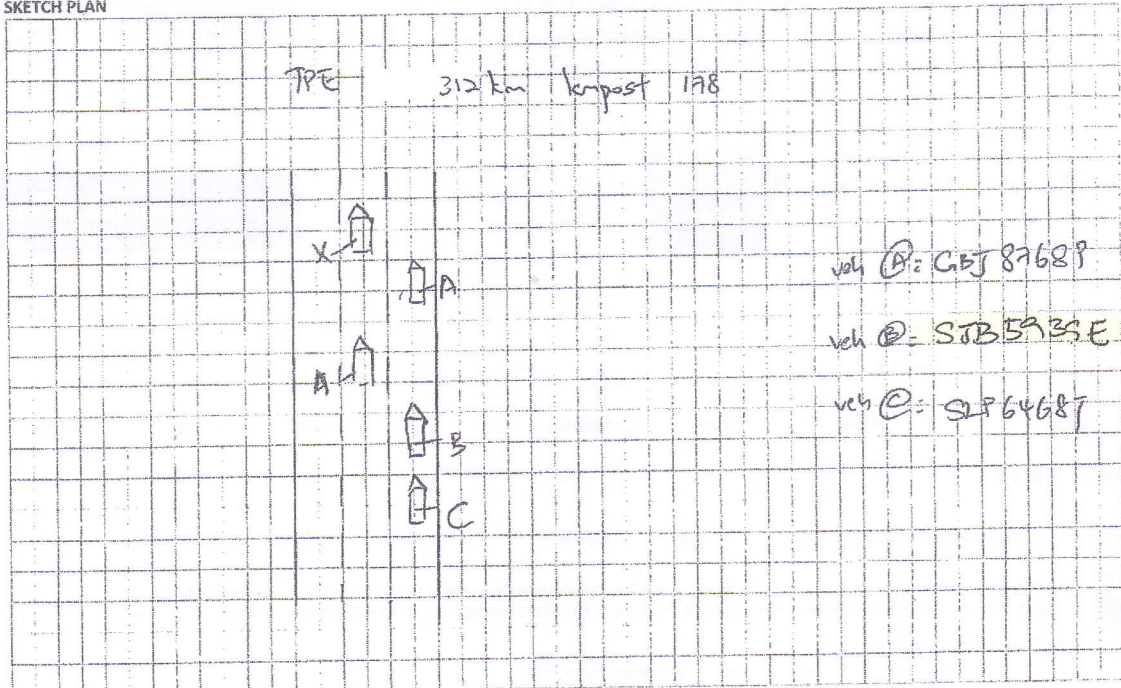 SKETCH PLAN
TPE 312 km kmpost 178
X
A
A
B
C
veh Ⓐ: GBJ 8768P
veh Ⓑ: STB5939E
veh Ⓒ: SLP6468T